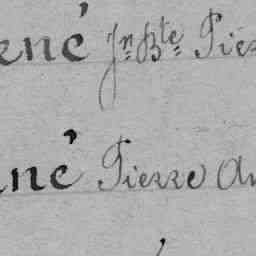 ené Jn Bte Pier
né Pierre An